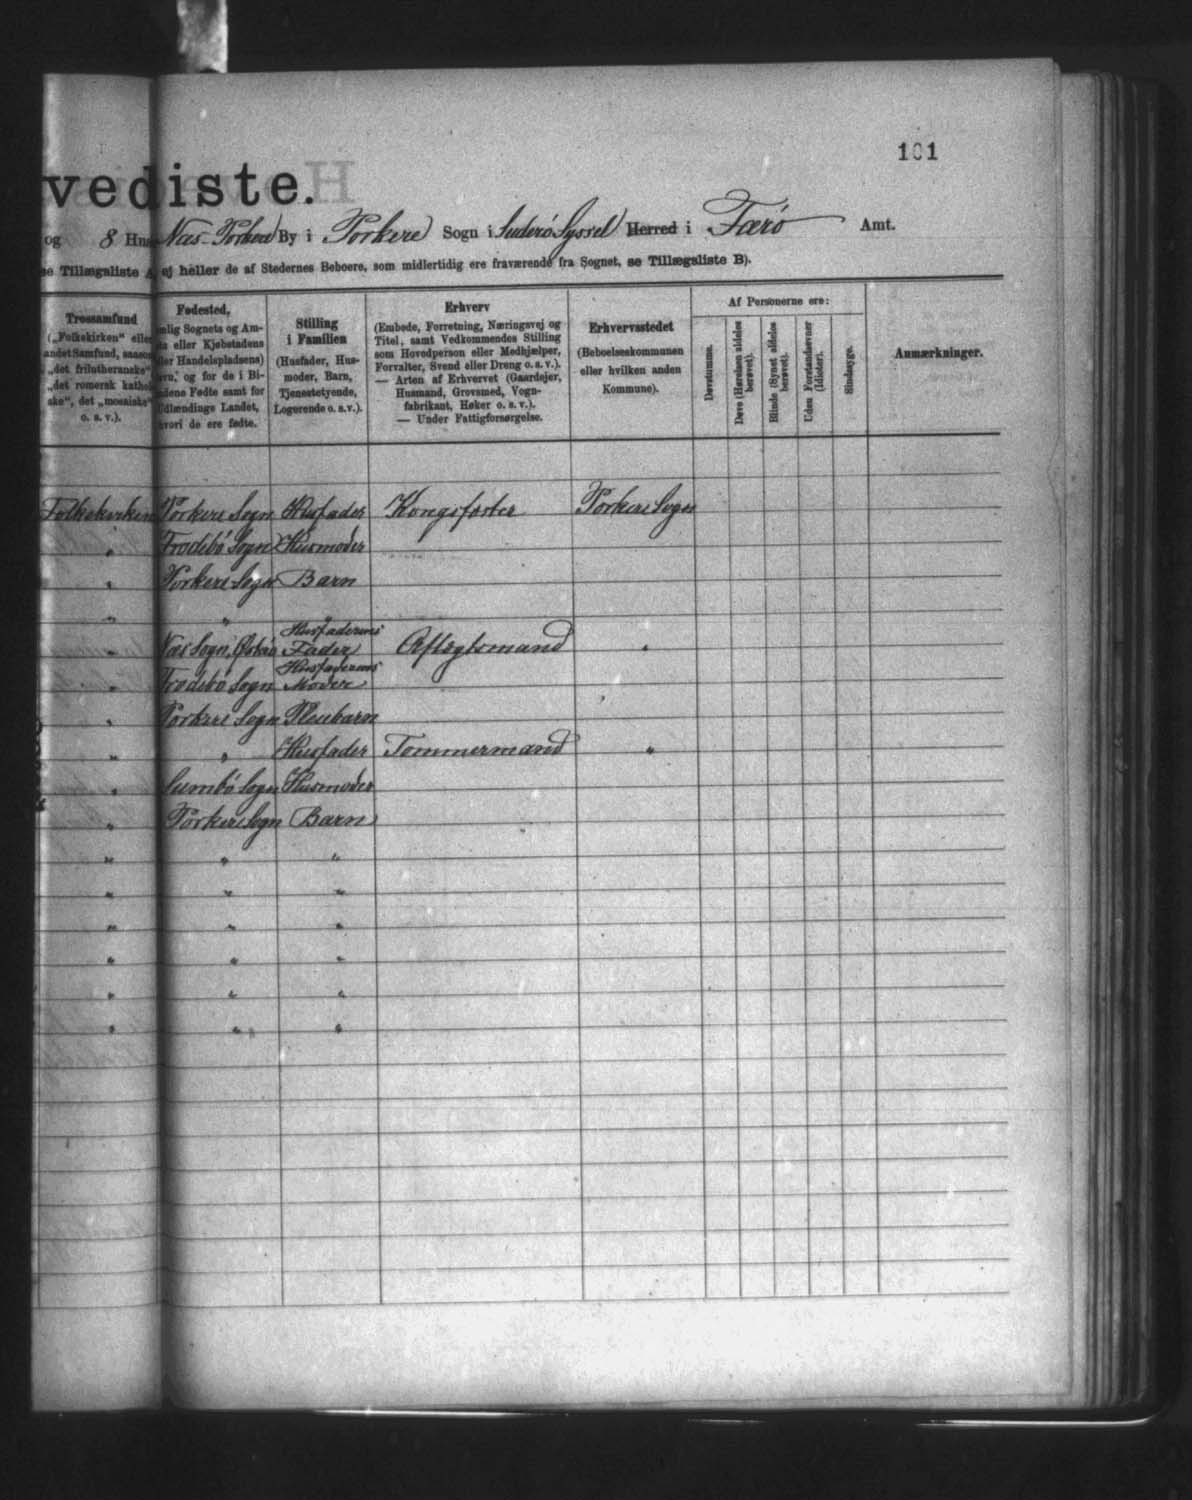 101
vediste.
og 8 Hus Næs-Porkere By i Porkere Sogn i Suderø Syssel Herred i Færø Amt.
se Tillægsliste A, ej heller de af Stedernes Beboere, som midlertidig ere fraværende fra Sognet, se Tillægsliste B).
Trossamfund
(„Folkekirken" eller
andet Samfund, saasom
„det frilutheranske"
„det romersk kathol
ske", det „mosaiske"
o. s. v.).
Fødested,
nlig Sognets og Am-
ts eller Kjøbstadens
ller Handelspladsens)
avn, og for de i Bi-
ndene Fødte samt for
Udlændinge Landet,
hvori de ere fødte.
Stilling
i Familien
(Husfader, Hus-
moder, Barn,
Tjenestetyende,
Logerende o. s.v.).
Erhverv
(Embede, Forretning, Næringsvej og
Titel, samt Vedkommendes Stilling
som Hovedperson eller Medhjælper,
Forvalter, Svend eller Dreng o. s. v.).
— Arten af Erhvervet (Gaardejer,
Husmand, Grovsmed, Vogn-
fabrikant, Høker o. s. v.).
— Under Fattigforsørgelse.
Erhvervsstedet
(Beboelseskommunen
eller hvilken anden
Kommune).
Af Personerne ere:
Døvstumme.
Døve (Hørelsen aldeles
berøvet).
Blinde (Synet aldeles
berøvet).
Uden Forstandsevner
(Idioter).
Sindssyge.
Anmærkninger.
Folkekirken Porkere Sogn Husfader Kongsfæster Porkere Sogn
" Frodebø Sogn Husmoder
" Porkere Sogn Barn
" " "
" Næs Sogn, Østerø Husfaderens Fader Aftægtsmand "
" Frodebø Sogn Husfaderens Moder
" Porkere Sogn Pleiebarn
" " Husfader Tømmermand "
" Sumbø Sogn Husmoder
" Porkere Sogn Barn
" " "
" " "
" " "
" " "
" " "
" " "